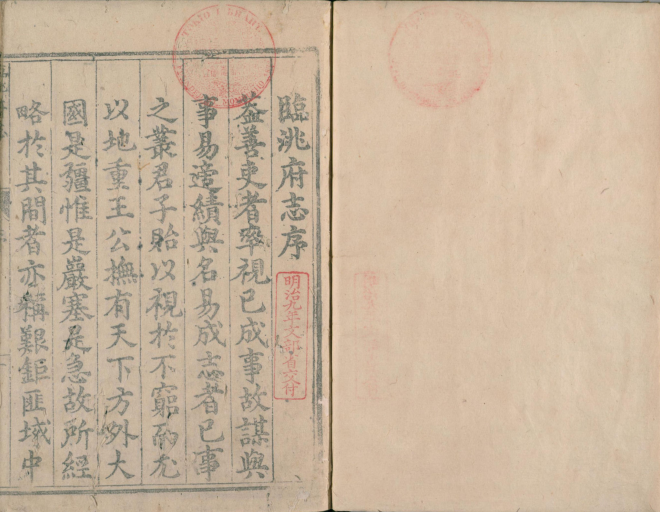 臨洮府志序
蓋善吏者率視已成事故謀與
事易違績與名易成志者已事
之叢君子貽以視於不窮而尤
以地重王公撫有天下方外大
國是疆惟是巖塞是急故所經
略於其間者亦稱艱鉅匪域中
明治九年文部省交付